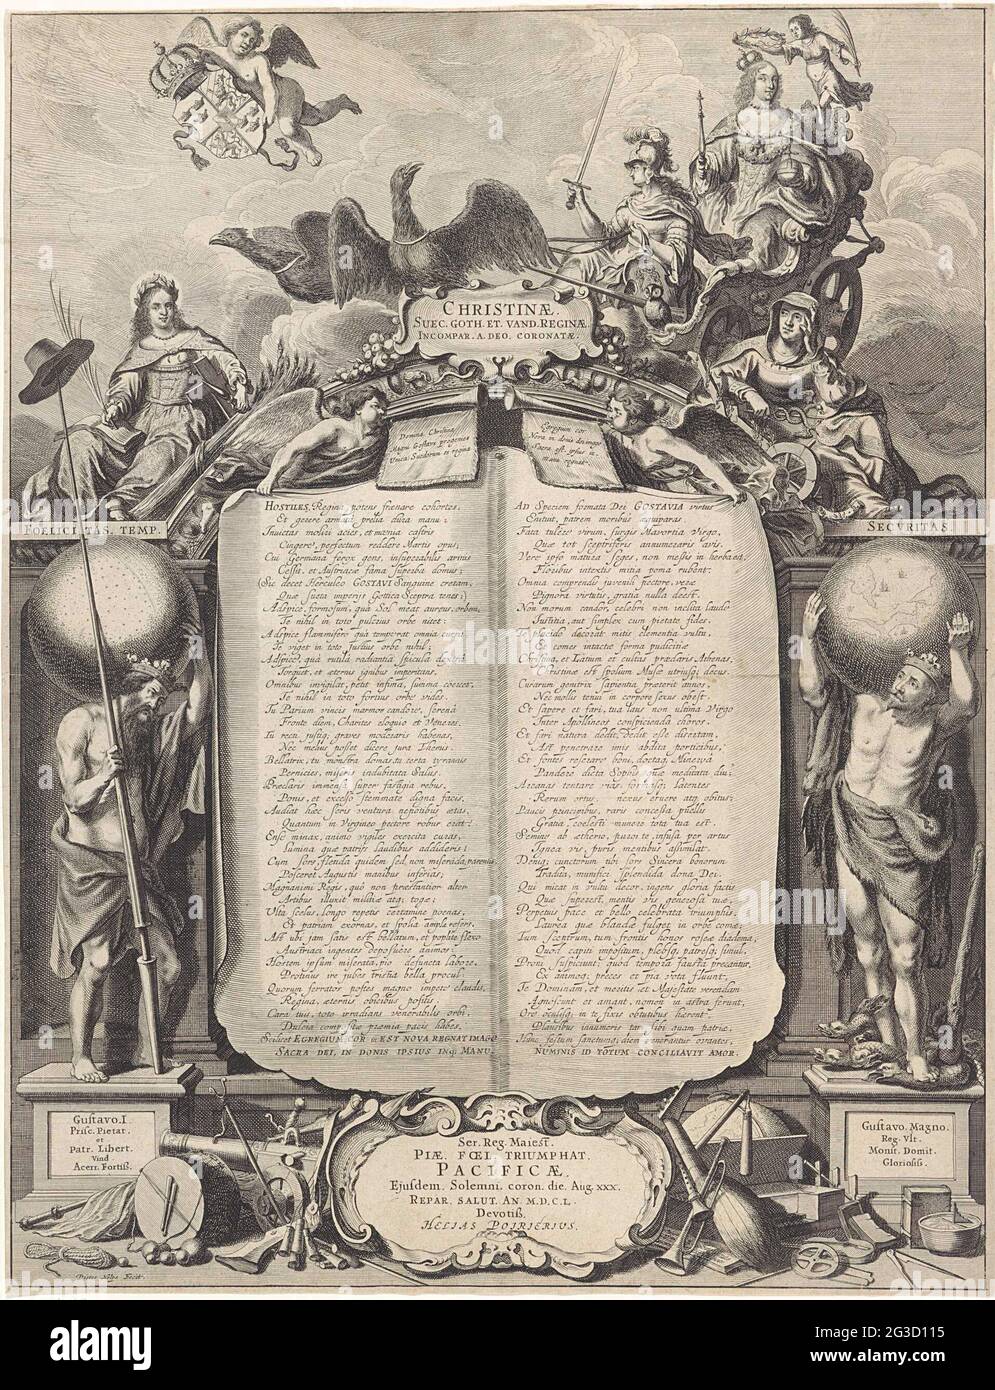 CHRISTINÆ.
SUEC. GOTH. ET. VAND. REGINÆ
INCOMPAR. A. DEO. CORONATÆ.
Domina Christina
Magni Gostavi progenies
Unica. Suedorum et regina
Egregium cor
Nova in donis den imago
Sacra est ipsius in
Manu
FOELICITAS. TEMP.
SECVRITAS
HOSTILES, Regina, potens frænare cohortes,
Et gerere armata prælia dura manu:
Invictas moliri acies, et mœnia castris
Cingere, perfectum reddere Martis opus;
Cui Germana ferox gens, insuperabilis armis
Cessit, et Austriacæ fama superba domus;
Sic decet Herculeo GOSTAVI Sanguine cretam,
Quæ sueta imperijs Gottica Sceptra tenes;
Adspice, formosum, quà Sol meat aureus, orbem,
Te nihil in toto pulcrius orbe nitet:
Adspice flammifero quà temperat omnia curru
Te viget in toto justius orbe nihil;
Adspice, quà rutila radiantia spicula dextra
Torquet, et æternis ignibus imperitans,
Omnibus invigilat, petit infima, summa coercet,
Te nihil in toto fortius orbe vides.
Tu Parium vincis marmor candore, serenâ
Fronte diem, Charites eloquio et Veneres.
Tu rectu justiq; graves moderaris habenas,
Nec melius posset dicere jura Themis.
Bellatrix, tu monstra domas, tu certa tyrannis
Pernicies, miseris indubitata Salus.
Præclaris immensa super fastigia rebus,
Ponis, et excelso stemmate digna facis.
Audiat hæc seris ventura nepotibus ætas,
Quantum in Virgineo pectore robur erat:
Ense minax, animo vigiles exercita curas,
Lumina quæ patrijs laudibus adsideris;
Cum sors flenda quidem sed non miseranda, parentis
Posceret Augustis manibus inferias;
Magnanimi Regis, quo non præstantior alter
Artibus illuxit militiæ atq; togæ;
Ulta scelus, longo repetis certamine poenas,
Et patriam exornas, et spolia ampla refers.
Ast ubi jam satis est bellatum, et poplite flexo
Austriaci ingentes deposuere animos:
Hostem ipsum miserata, pio defuncta labore
Protinus ire jubes tristia bella procul.
Quorum ferratos postes magno impete claudis,
Regina, æternis obicibus positis,
Cara tuis, toto irradians venerabilis orbi,
Dulcia compositæ præmia pacis habes.
Scilicet EGREGIUM COR EST NOVA REGNAT IMAGO
SACRA DEI, IN DONIS IPSIUS INQ; MANU.
AD Speciem formata Dei GOSTAVIA virtus
Enitut, patrem moribus æquiparas.
Fata tulere virum, surgis Mavortia Virgo,
Quæ tot sceptriferos annumerares avos.
Vere ipso matura seges, non messis in herba
Floribus intextis mitia poma rubent:
Omnia comprendis juvenili pectore, veræ
Pignora virtutis, gratia nulla deest.
Non morum candor, celebri non inclita laude
Justitia, aut simplex cum pietate fides.
Te placido decorat mitis clementia vultu,
Et comes intactæ forma pudicitiæ
Christina, et Latium et cultus prædaris Athenas,
Christinæ est spolium Musæ utriusq; decus.
Curarum genitrix sapientia præterit annos,
Nec mollis tenui in corpore sexus obest.
Et sapere et fari, tua laus non ultima Virgo
Inter Apollineos conspicienda choros.
Et fari natura dedit, Dedit esse disertam,
Ast penetrare imis abdita porticibus,
Et fontes reserare boni, doctaq; Minerva
Pandere dicta Sophis, quæ meditata diu;
Arcanas tentare vias formasq; latentes
Rerum ortus, nexus eruere atq; obitus;
Paucis principibus, raro concessa puellis
Gratia, coelesti munere tota tua est.
Semine ab ætherio, putares te, infusa per artus
Ignea vis, puris mentibus assimilat.
Deniq; cunctarum tibi sors Sincera bonorum
Tradita, munifici splendida dona Dei.
Qui micat in vultu decor, ingens gloria factis
Quæ superest, mentis vis generosa tuæ:
Perpetus pace et bello celebrata triumphis
Laurea quæ blandè fulget in orbe comæ:
Tum sceptrum, tum frontis honos roseæ diadema,
Quod capiti impositum, plebsq; patresq; simul
Proni suspiciunt, quod tempora fausta precantur,
Ex animoq; preces et pia vota fluunt.
Te Dominam, et meritis et Majestate verendam
Agnoscunt et amant, nomen in astra ferunt,
Oro oculisq; in te fixis obtutibus hærent.
Plausibus innumeris tam sibi quam patriæ.
Hanc festum sanctumq; diem venerantur ovantes,
NUMINIS ID TOTUM CONCILIAVIT AMOR.
Gustavo. I.
Prisc. Pietat.
et
Patr. Libert.
Vind
Acerr. Fortiss.
Ser. Reg. Maiest.
PIÆ. FŒL. TRIUMPHAT.
PACIFICÆ.
Ejusdem. Solemni. coron. die. Aug. xxx.
REPAR. SALUT. AN. M.D.C.L.
Devotiss.
HELIAS POIRIERIUS.
Gustavo. Magno.
Reg. Vlt.
Monst. Domit.
Gloriosiss.
Pieter Nolpe Fecit.
alamy
Image ID: 2G3D115
www.alamy.com